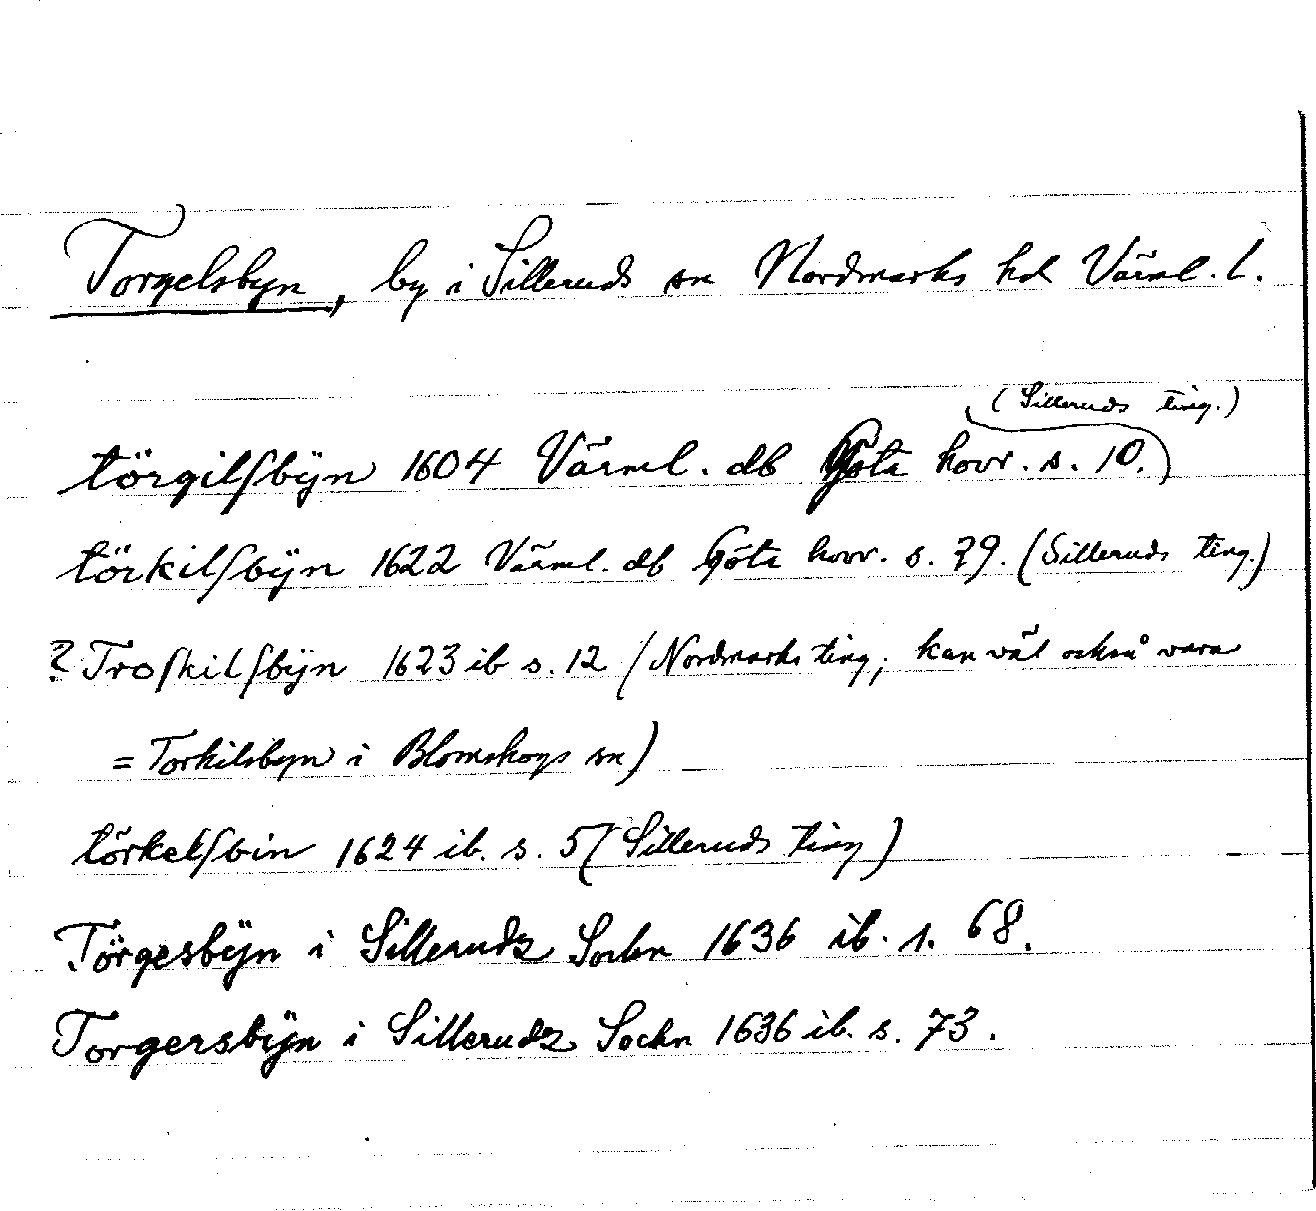 Torgelsbyn, by i Silleruds sn Nordmarks hd Värml. l.
(Silleruds ting.)
törgilſbÿn 1604 Värml. db Göta hovr. s. 10.
törkilſbÿn 1622 Värml. db Göta hovr. s. 29. (Silleruds ting.)
? Troſkilſbÿn 1623 ib s. 12 (Nordmarks ting, kan väl också vara
= Torkilsbyn i Blomskogs sn)
törkelſbin 1624 ib. s. 5 (Silleruds ting)
Törgesbÿn i Sillerudz Sochn 1636 ib. s. 68.
Torgersbÿn i Sillerudz Sochn 1636 ib. s. 73.